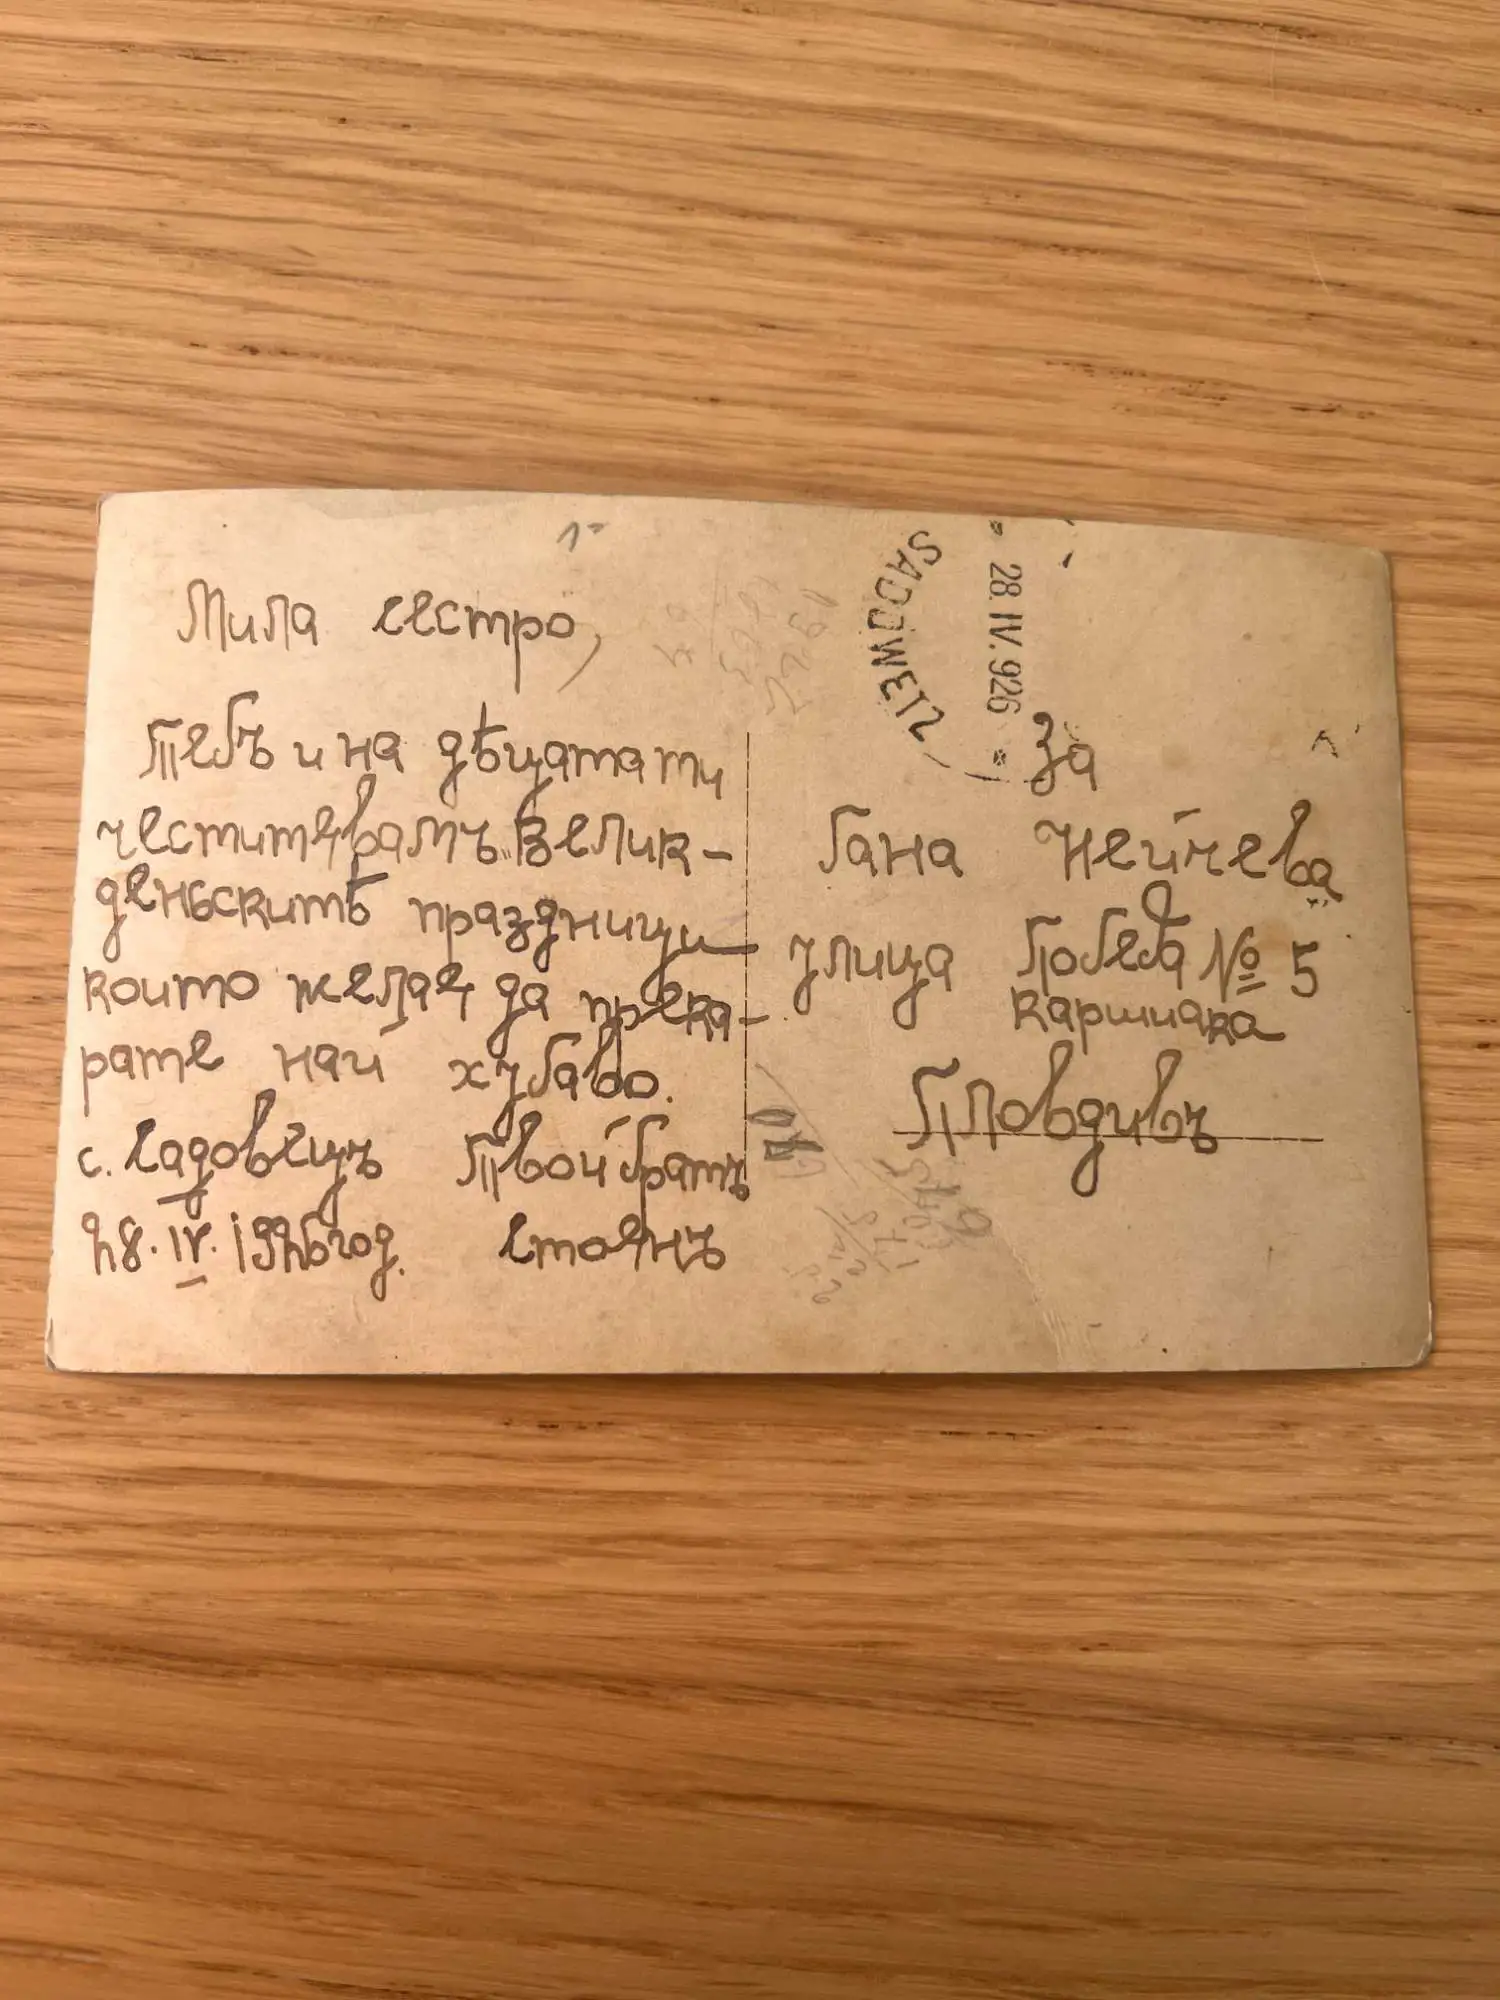 Мила сестро,
Тебъ и на дѣцата ти
честитявамъ Велик-
деньскитѣ праздници
които желая да прека-
рате най хубаво.
с. Садовецъ Твой братъ
28. IV. 1926 год. Стоянъ
SADOWETZ
28. IV. 926
За
Гана Нейчева
улица Победа № 5
каршиака
Пловдивъ